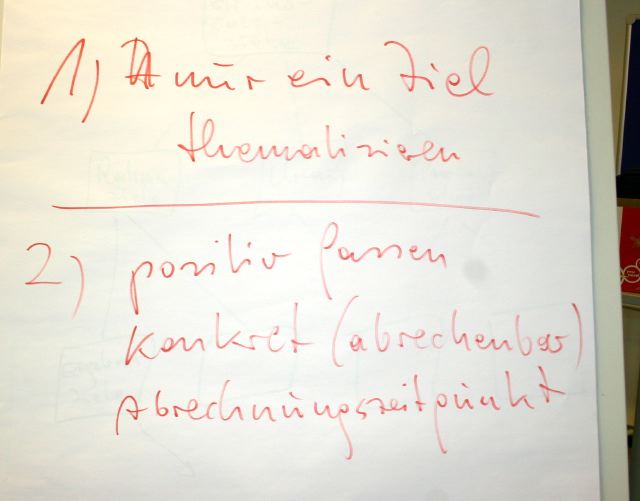 1) nur ein Ziel
thematisieren
2) positiv fassen
konkret (abrechenbar)
Abrechnungszeitpunkt